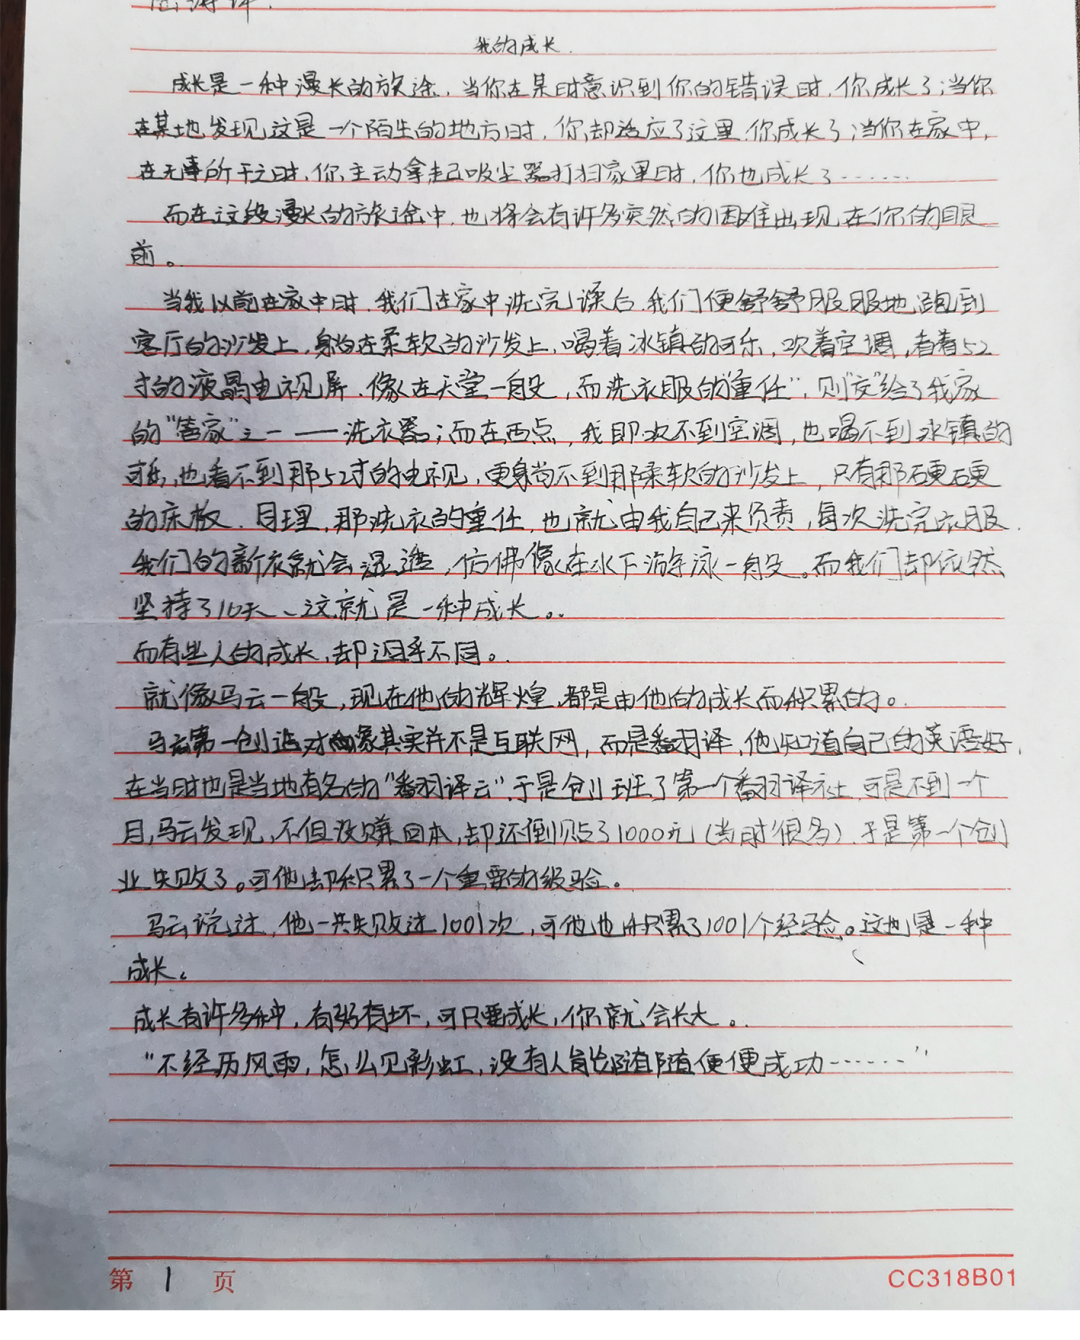 我的成长
成长是一种漫长的旅途，当你在某时意识到你的错误时，你成长了；当你
在某地发现这是一个陌生的地方时，你却适应了这里，你成长了；当你在家中，
在无事所干之时，你主动拿起吸尘器打扫家里时，你也成长了……
而在这段漫长的旅途中，也将会有许多突然的困难出现在你的眼
前。
当我以前在家中时，我们在家中洗完澡后，我们便舒舒服服地跑到
客厅的沙发上，躺在柔软的沙发上，喝着冰镇的可乐，吹着空调，看着52
寸的液晶电视屏，像在天堂一般，而洗衣服的"重任"，则"交"给了我家
的"管家"之一——洗衣器；而在西点，我即吹不到空调，也喝不到冰镇的
可乐，也看不到那52寸的电视，更躺不到那柔软的沙发上，只有那硬硬
的床板，自理，那洗衣的重任，也就由我自己来负责，每次洗完衣服，
我们的新衣就会湿透，仿佛像在水下游泳一般。而我们却依然
坚持了10天、这就是一种成长。
而有些人的成长，却迥乎不同。
就像马云一般，现在他的辉煌，都是由他的成长而积累的。
马云第一创造对象其实并不是互联网，而是翻译，他知道自己的英语好，
在当时也是当地有名的"翻译云"于是创班了第一个翻译社，可是不到一个
月，马云发现，不但没赚回本，却还倒贴了1000元（当时很多），于是第一个创
业失败了。可他却积累了一个重要的经验。
马云说过，他一共失败过1001次，可他也积累了1001个经验。这也是一种
成长。
成长有许多种，有好有坏，可只要成长，你就会长大。
"不经历风雨，怎么见彩虹，没有人能随随便便成功……"
第 1 页
CC318B01